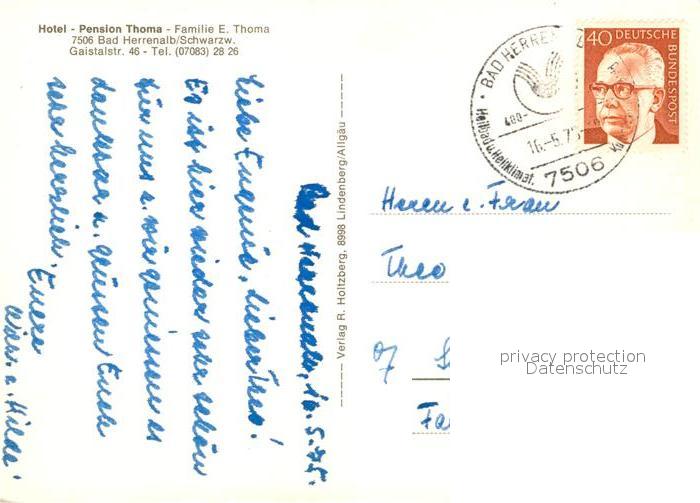 Hotel - Pension Thoma - Familie E. Thoma
7506 Bad Herrenalb/Schwarzw.
Gaistalstr. 46 - Tel. (07083) 28 26
Bad Herrenalb, 16.5.75.
Liebe Eugenie, lieber Theo!
Es ist hier wieder sehr schön
für uns u. wir geniessen es
dankbar u. grüssen Euch
sehr herzlich,
Eure
u. Hilde.
Verlag R. Holtzberg, 8998 Lindenberg/Allgäu
BAD HERREN
480-
16.-5.75
Heilbad u. Heilklimat.
7506
40 DEUTSCHE
BUNDESPOST
Herrn u. Frau
Theo
privacy protection
Datenschutz